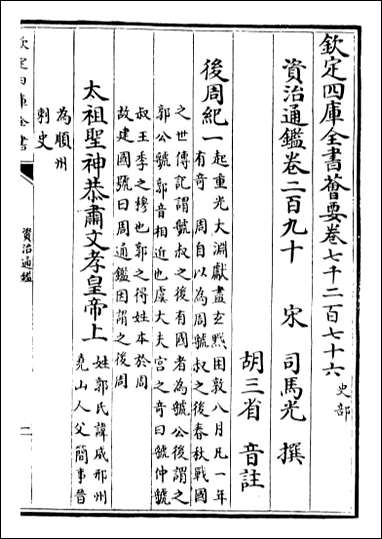 欽定四庫全書薈要卷七千二百七十六 史部
資治通鑑卷二百九十 宋 司馬光 撰
胡三省 音註
後周紀一 起重光大淵獻盡玄黓困敦八月凡一年
有奇 周自以為周虢叔之後春秋戰國
之世傳記謂虢叔之後有國者為虢公後謂之
郭公虢郭音相近也虞大夫宮之奇曰虢仲虢
叔王季之穆也郭之得姓本於周
故建國號曰周通鑑因謂之後周
太祖聖神恭肅文孝皇帝上 姓郭氏諱威邢州
堯山人父簡事晉
為順州
刺史
欽定四庫全書
資治通鑑